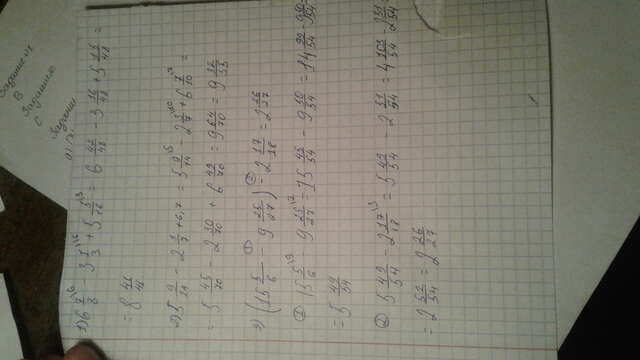 Задание
В
Задание
С
Задани
1) 6 7/8 - 3 1/3 + 5 5/16 = 6 42/48 - 3 16/48 + 5 15/48 =
= 8 41/48
2) 5 9/14 - 2 3/7 + 6,7 = 5 9/14 - 2 3/7 + 6 7/10 =
= 5 45/70 - 2 30/70 + 6 49/70 = 9 64/70 = 9 32/35
3) (15 5/6 - 9 25/27) - 2 17/18 = 2 26/27
① 15 5/6 - 9 25/27 = 15 45/54 - 9 50/54 = 14 99/54 - 9 50/54
= 5 49/54
② 5 49/54 - 2 17/18 = 5 49/54 - 2 51/54 = 4 103/54 - 2 51/54
= 2 52/54 = 2 26/27